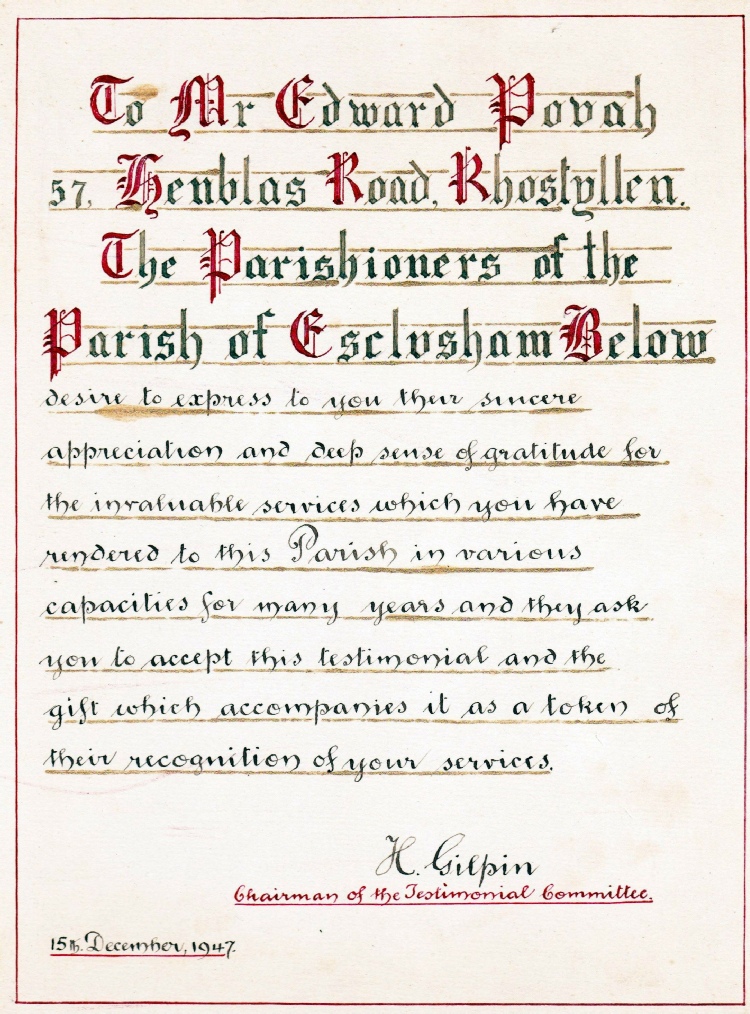 To Mr Edward Povah
57, Henblas Road, Rhostyllen.
The Parishioners of the
Parish of Esclusham Below
desire to express to you their sincere
appreciation and deep sense of gratitude for
the invaluable services which you have
rendered to this Parish in various
capacities for many years and they ask
you to accept this testimonial and the
gift which accompanies it as a token of
their recognition of your services.
H. Gilpin
Chairman of the Testimonial Committee.
15th. December, 1947.